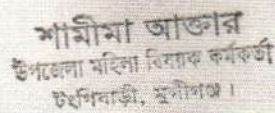 শামীমা আক্তার
উপজেলা মহিলা বিষয়ক কর্মকর্তা
টংগিবাড়ী, মুন্সীগঞ্জ।